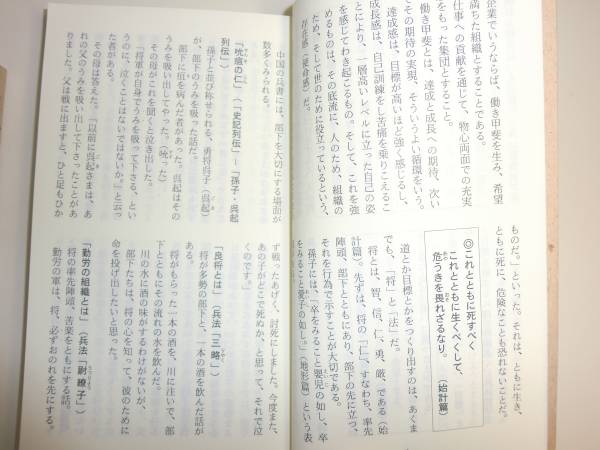 企業でいうならば、働き甲斐を生み、希望
満ちた組織とすることである。
仕事への貢献を通じて、物心両面での充実
をもった集団とすること。
働き甲斐とは、達成と成長への期待、次い
でその期待の実現、そういうよい循環をいう。
達成感は、目標が高いほど強く感じるし、
成長感は、自己訓練をし苦痛を乗りこえるこ
とにより、一層高いレベルに立った自己の姿
を感じてわき起こるもの。そして、これを強
めるものは、その底流に、人のため、組織の
ため、そして世のために役立っているという、
存在感（使命感）だ。
ものだ。」といった。それは、ともに生き、
ともに死に、危険なことも恐れないことだ。
◎これとともに死すべく
これとともに生くべくして、
危うきを畏れざるなり。
（始計篇）
道とか目標とかをつくり出すのは、あくま
でも、「将」と「法」だ。
将とは、智、信、仁、勇、厳、である（始
計篇）。先ずは、将の「仁」、すなわち、率先
陣頭、部下とともにあり、部下の先に立つ、
それを行為で示すことが大切である。
孫子には、「卒をみること嬰児の如し、卒
をみること愛子の如し。」（地形篇）という表
中国の兵書には、部下を大切にする場面が
数多くみられる。
「吮疽の仁」（「史記列伝」―「孫子・呉起
列伝）
孫子と並び称せられる、勇将呉子（呉起）
が、部下のうみを吸った話だ。
部下に疽を病んだ者があった。呉起はその
うみを吸い出してやった。（吮った）
その母がこれを聞くと泣き出した。
「将軍が自身でうみを吸って下さる、とい
うのに、泣くことはないではないか。」と云っ
た者がある。
その母は答えた。「以前に呉起さまは、あ
れの父のうみを吸い出して下さったことがあ
りました。父は戦に出ますと、ひと足もひか
ず戦ったあげく、討死にしました。今度また、
あの子がどこで死ぬか、と思って、それで泣
くのです。」
「良将とは」（兵法「三略」）
将が多勢の部下と、一本の酒を飲んだ話が
ある。
将がもらった一本の酒を、川に注いで、部
下とともにその流れの水を飲んだ。
川の水に酒の味がするわけがないが、
部下たちは、将の心を知って、彼のために
命を投げ出したいと思った。
「勤労の組織とは」（兵法「尉繚子」）
将の率先陣頭、苦楽をともにする話。
勤労の軍は、将、必ずおのれを先にする。